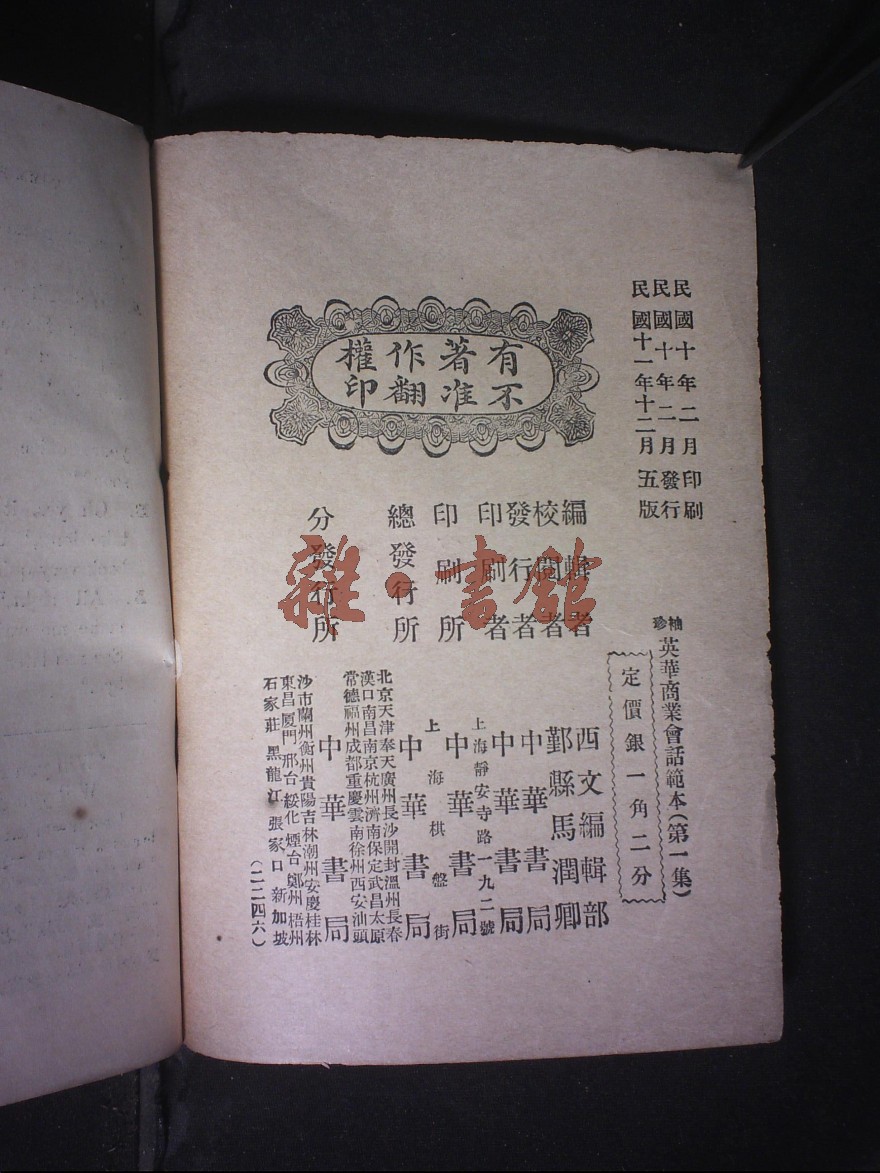 民國十年二月印刷
民國十年二月發行
民國十一年十二月五版
有著作權
不准翻印
袖珍英華商業會話範本(第一集)
定價銀一角二分
編輯者 西文編輯部
校閱者 鄞縣馬潤卿
發行者 中華書局
印刷者 中華書局
印刷所 上海靜安寺路一九二號 中華書局
總發行所 上海棋盤街 中華書局
分發行所 中華書局
北京天津奉天廣州長沙開封溫州長春
漢口南昌南京杭州濟南保定武昌太原
常德福州成都重慶雲南徐州西安汕頭
沙市蘭州衡州貴陽吉林潮州安慶桂林
東昌厦門邢台綏化煙台鄭州梧州
石家莊黑龍江張家口新加坡
(二二四六)
雜·書館